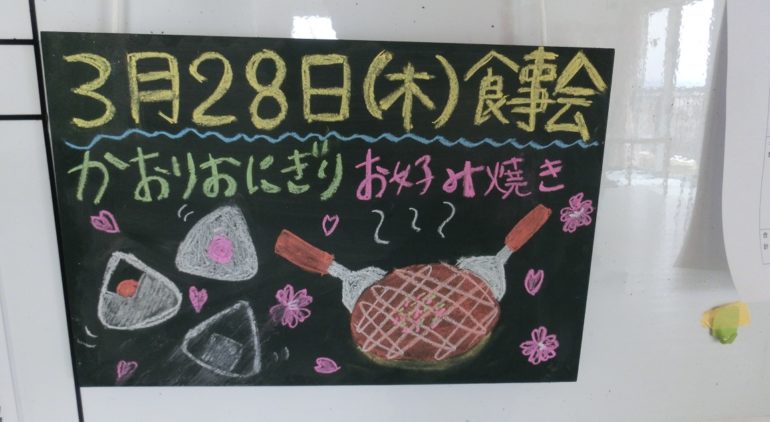 3月28日(木)食事会
かおりおにぎり お好み焼き